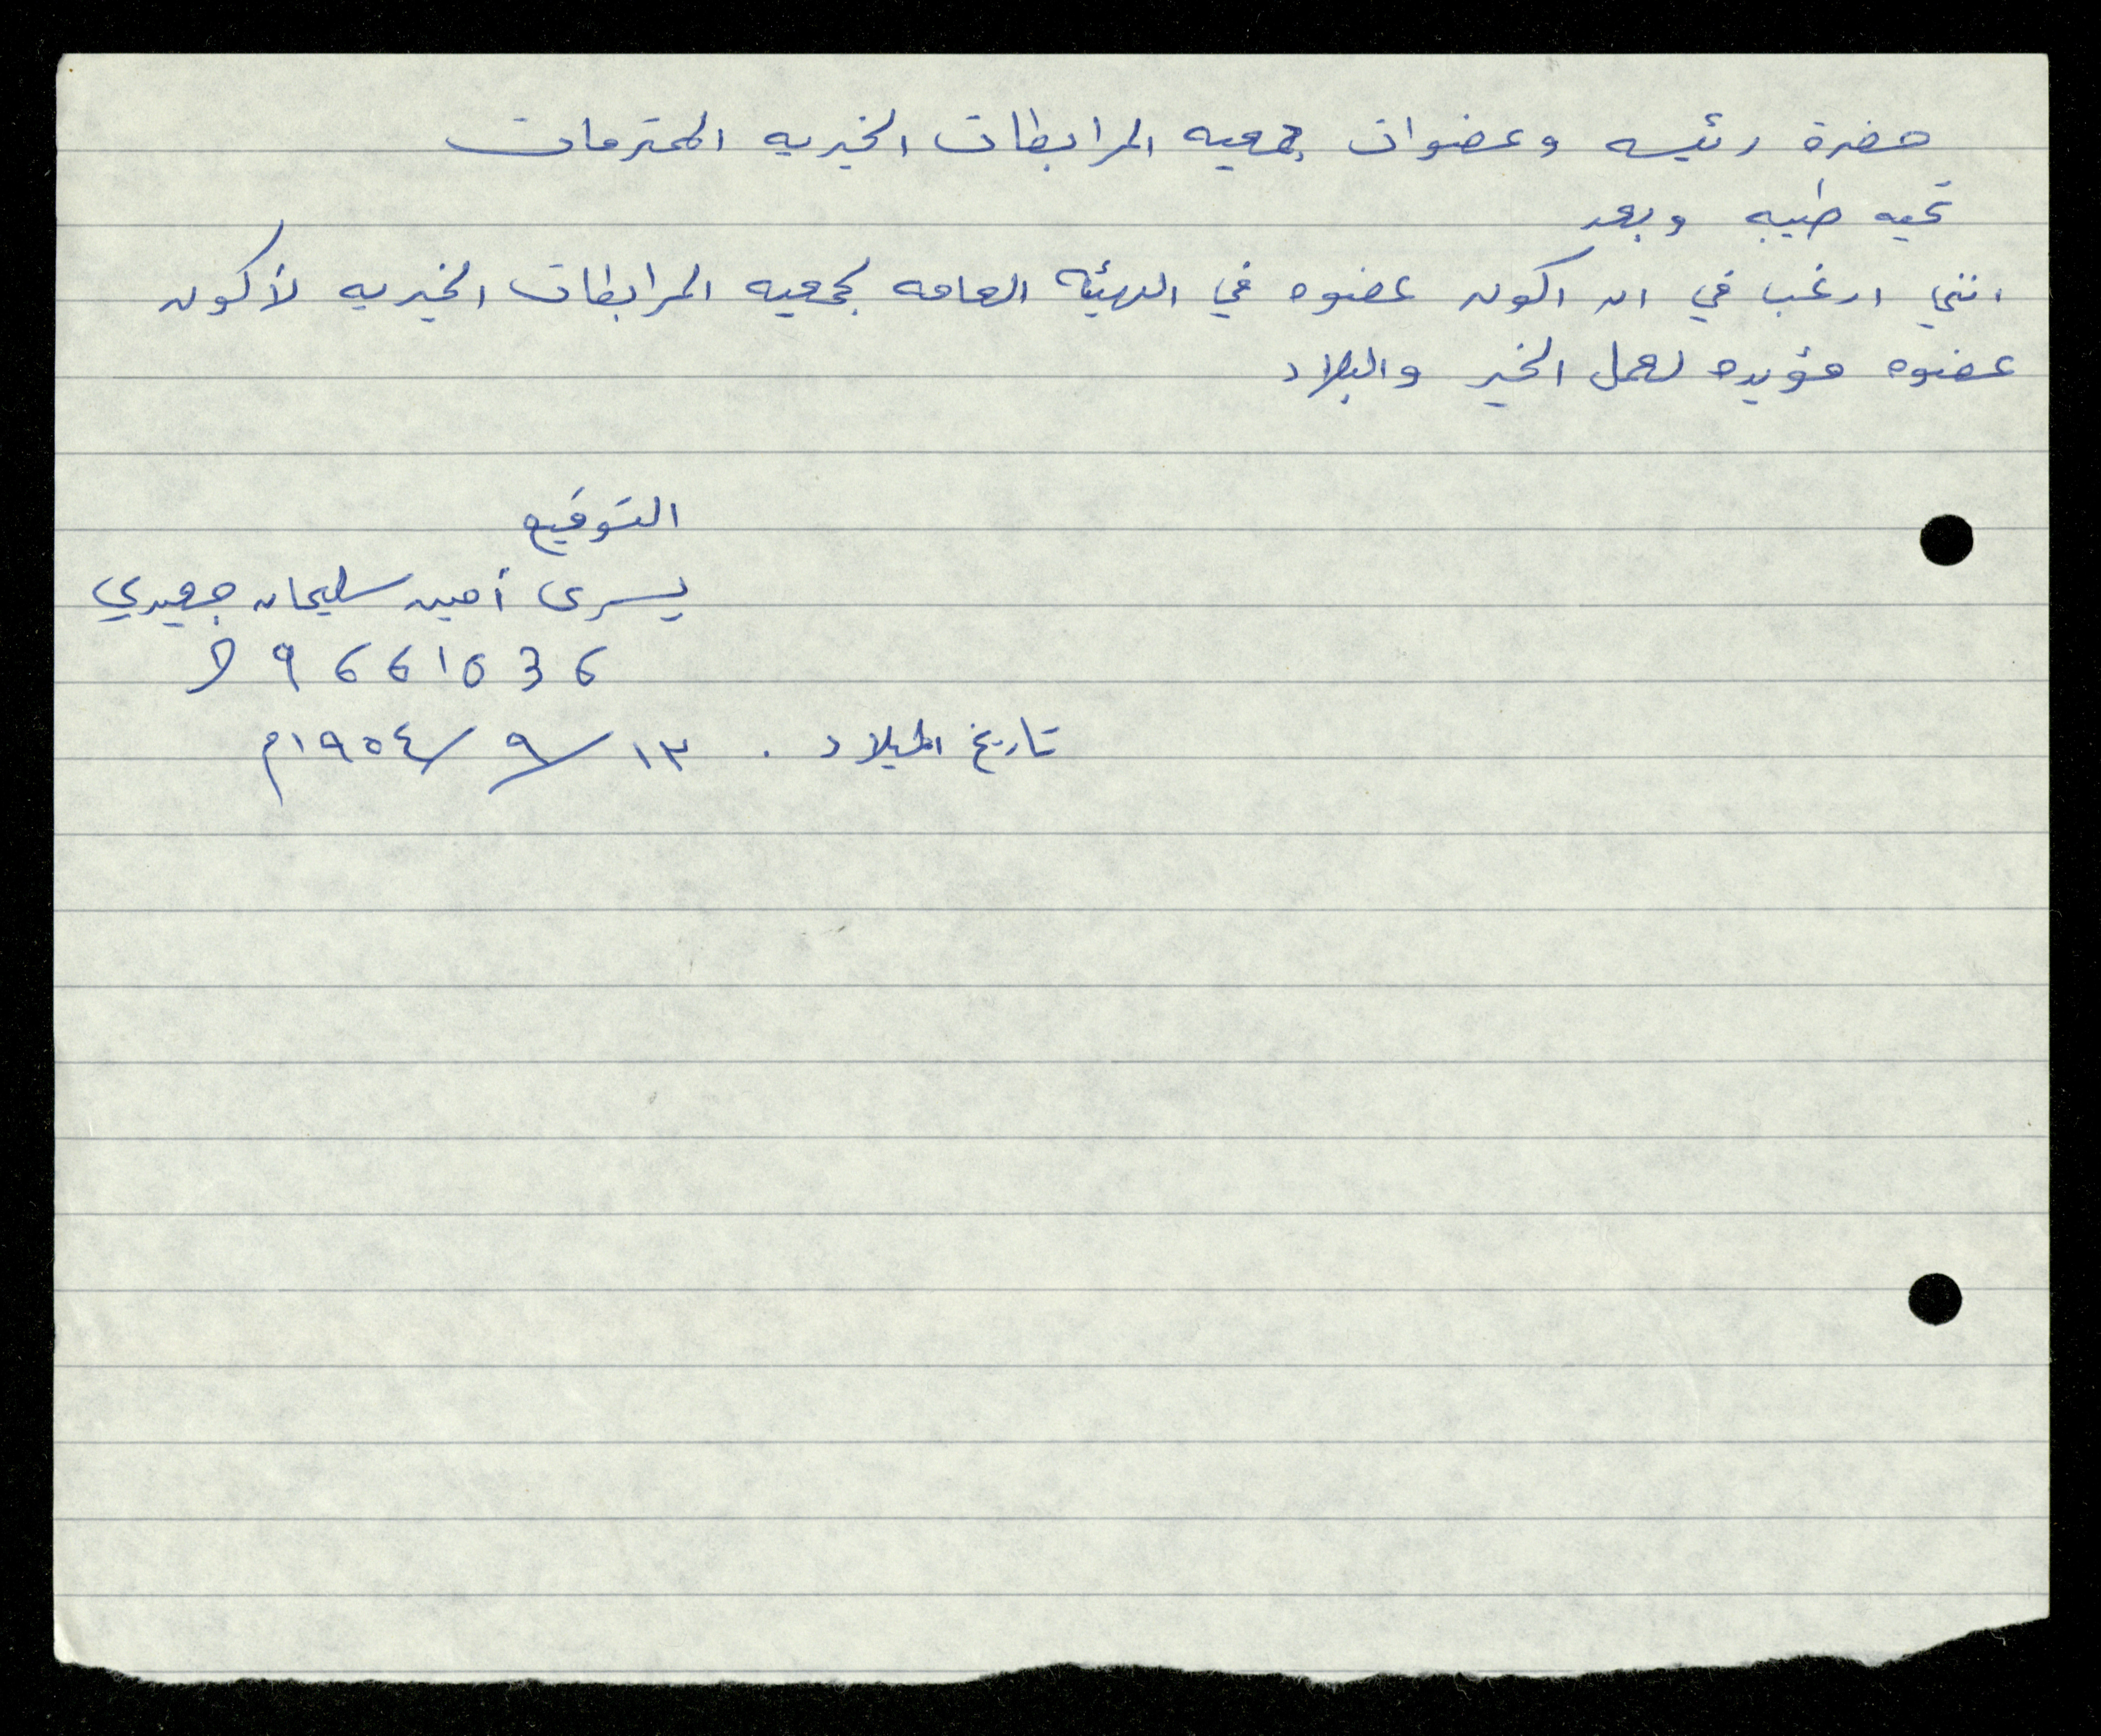 حضرة رئيسه وعضوات جمعيه المرابطات الخيريه المحترمات
تحيه طيبه وبعد
انني ارغب في ان اكون عضوه في الهيئه العامه لجمعيه المرابطات الخيريه لأكون
عضوه مؤيده لعمل الخير والبلاد
التوقيع
يسرى أمين سليمان جعيدي
96661536
تاريخ الميلاد . ١٣/٩/١٩٥٤م